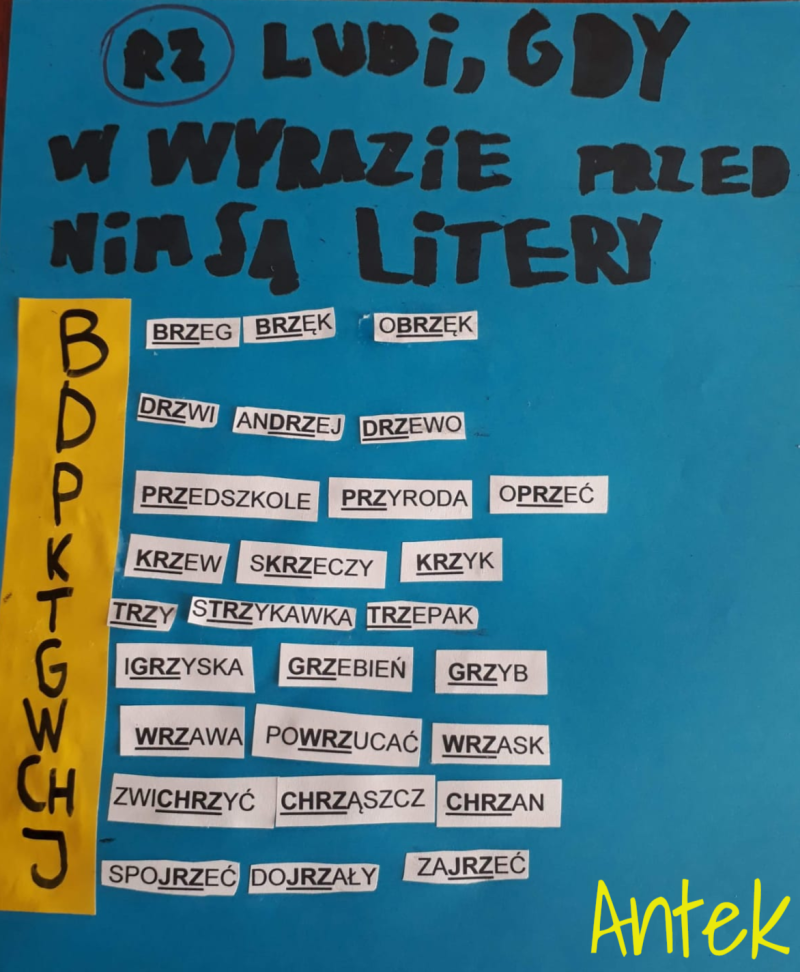 RZ LUBi, GDY
W WYRAZiE PRZED
NiM SĄ LiTERY
B BRZEG BRZĘK OBRZĘK
D DRZWI ANDRZEJ DRZEWO
P PRZEDSZKOLE PRZYRODA OPRZEĆ
K KRZEW SKRZECZY KRZYK
T TRZY STRZYKAWKA TRZEPAK
G IGRZYSKA GRZEBIEŃ GRZYB
W WRZAWA POWRZUCAĆ WRZASK
CH ZWICHRZYĆ CHRZĄSZCZ CHRZAN
J SPOJRZEĆ DOJRZAŁY ZAJRZEĆ
Antek